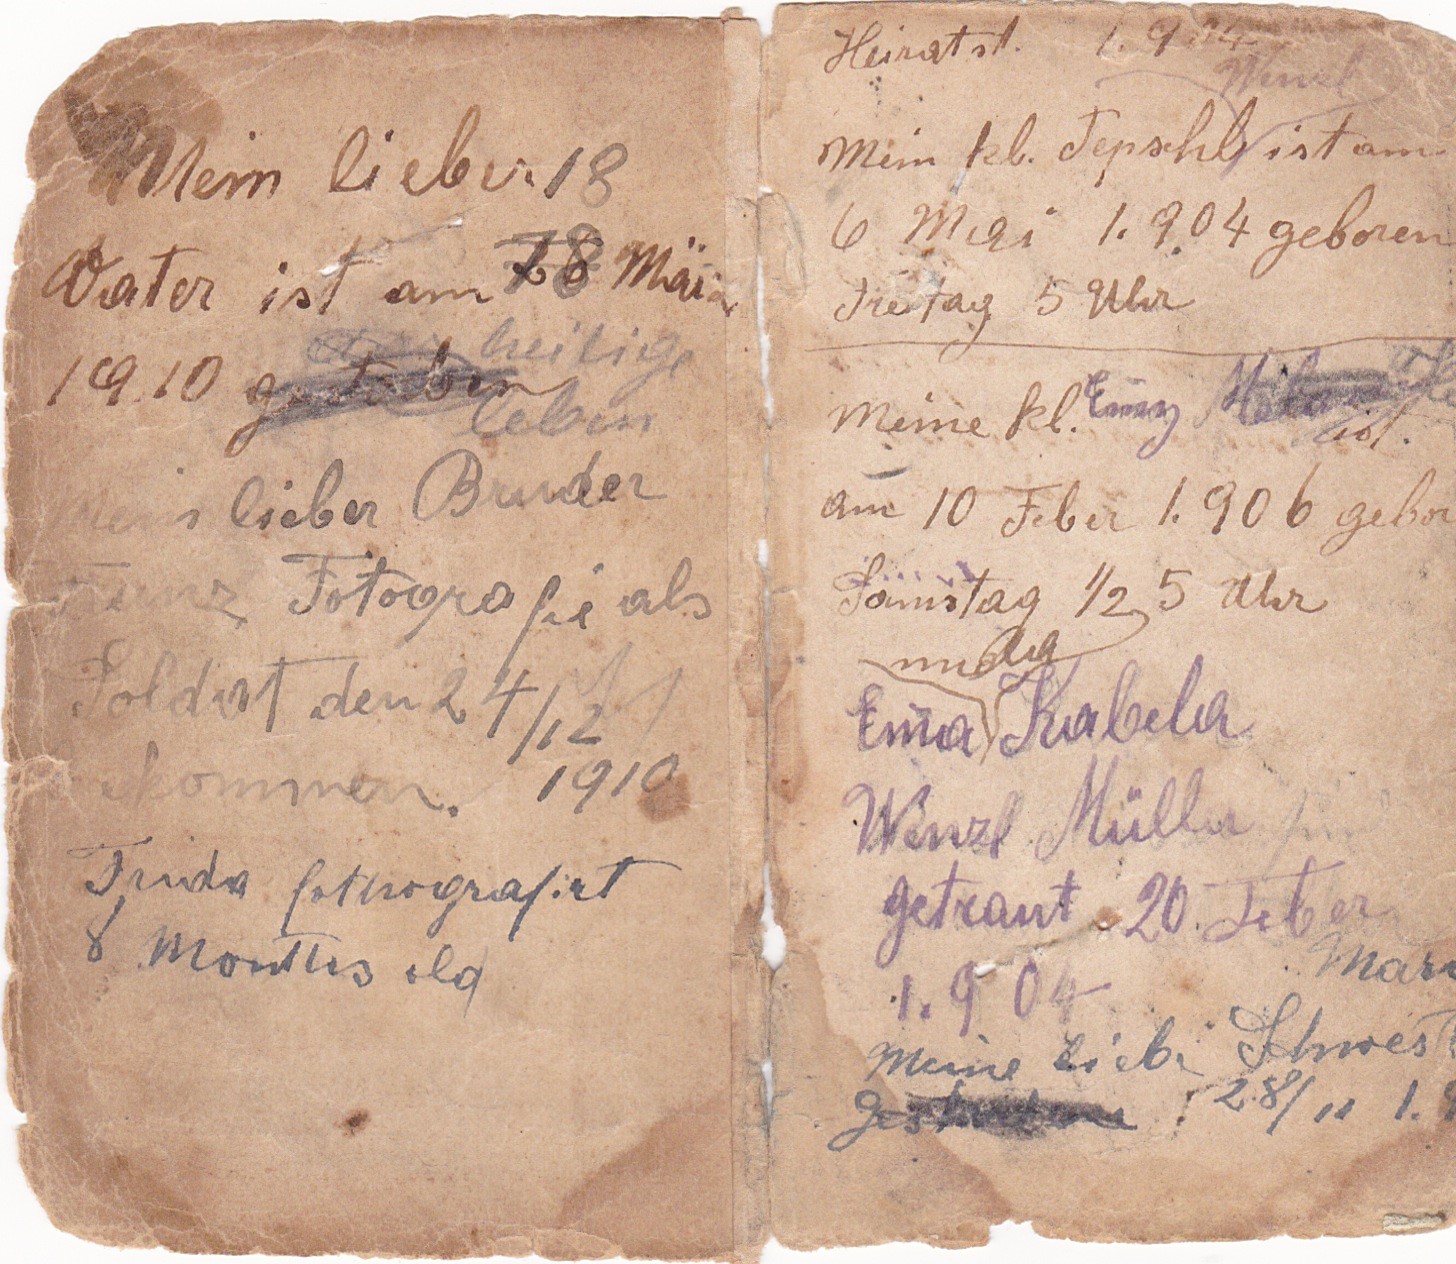 Mein lieber 18
Vater ist am 28 März
heilige
1910 gestoben
leben
Mein lieber Bruder
Franz Fotografie als
Soldat den 24/12
kommen. 1910
Frida fothografirt
8 Months old
Heiratst. 1.904
Wenzl
Mein kl. Pepschl ist am
6 Mai 1.904 geboren
Freitag 5 Uhr
Meine kl. Emy ist.
am 10 Feber 1.906 gebor
Samstag 1/2 5 Uhr
Ema Isabela
Wenzl Müller
getraut 20 Feber
1.904
Meine liebe Schwest
28/11 1.